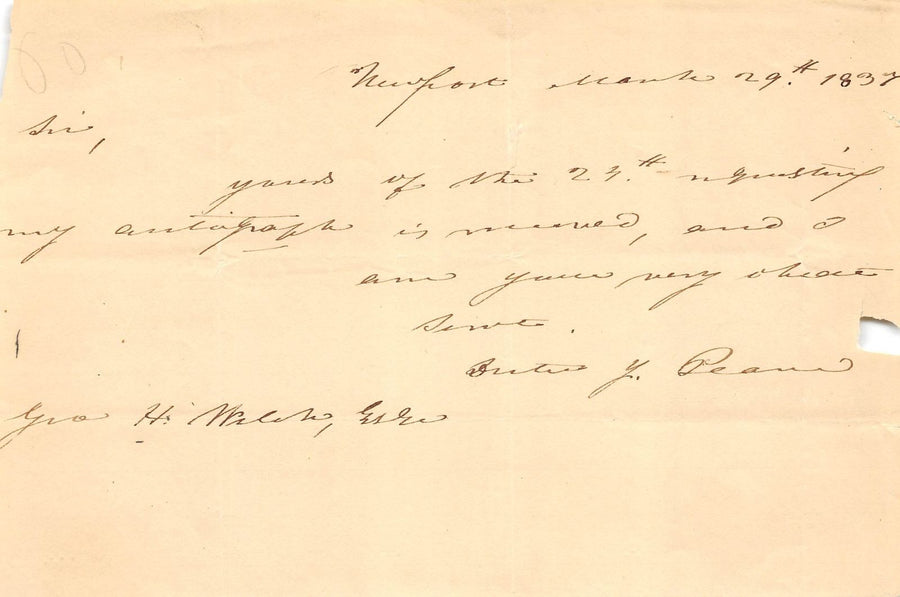 Newport March 29th. 1837
Sir,
yours of the 24th. requesting
my autograph is received, and I
am your very obedt
Servt.
Dutee J. Pearce
Geo H. Welch, Esqr